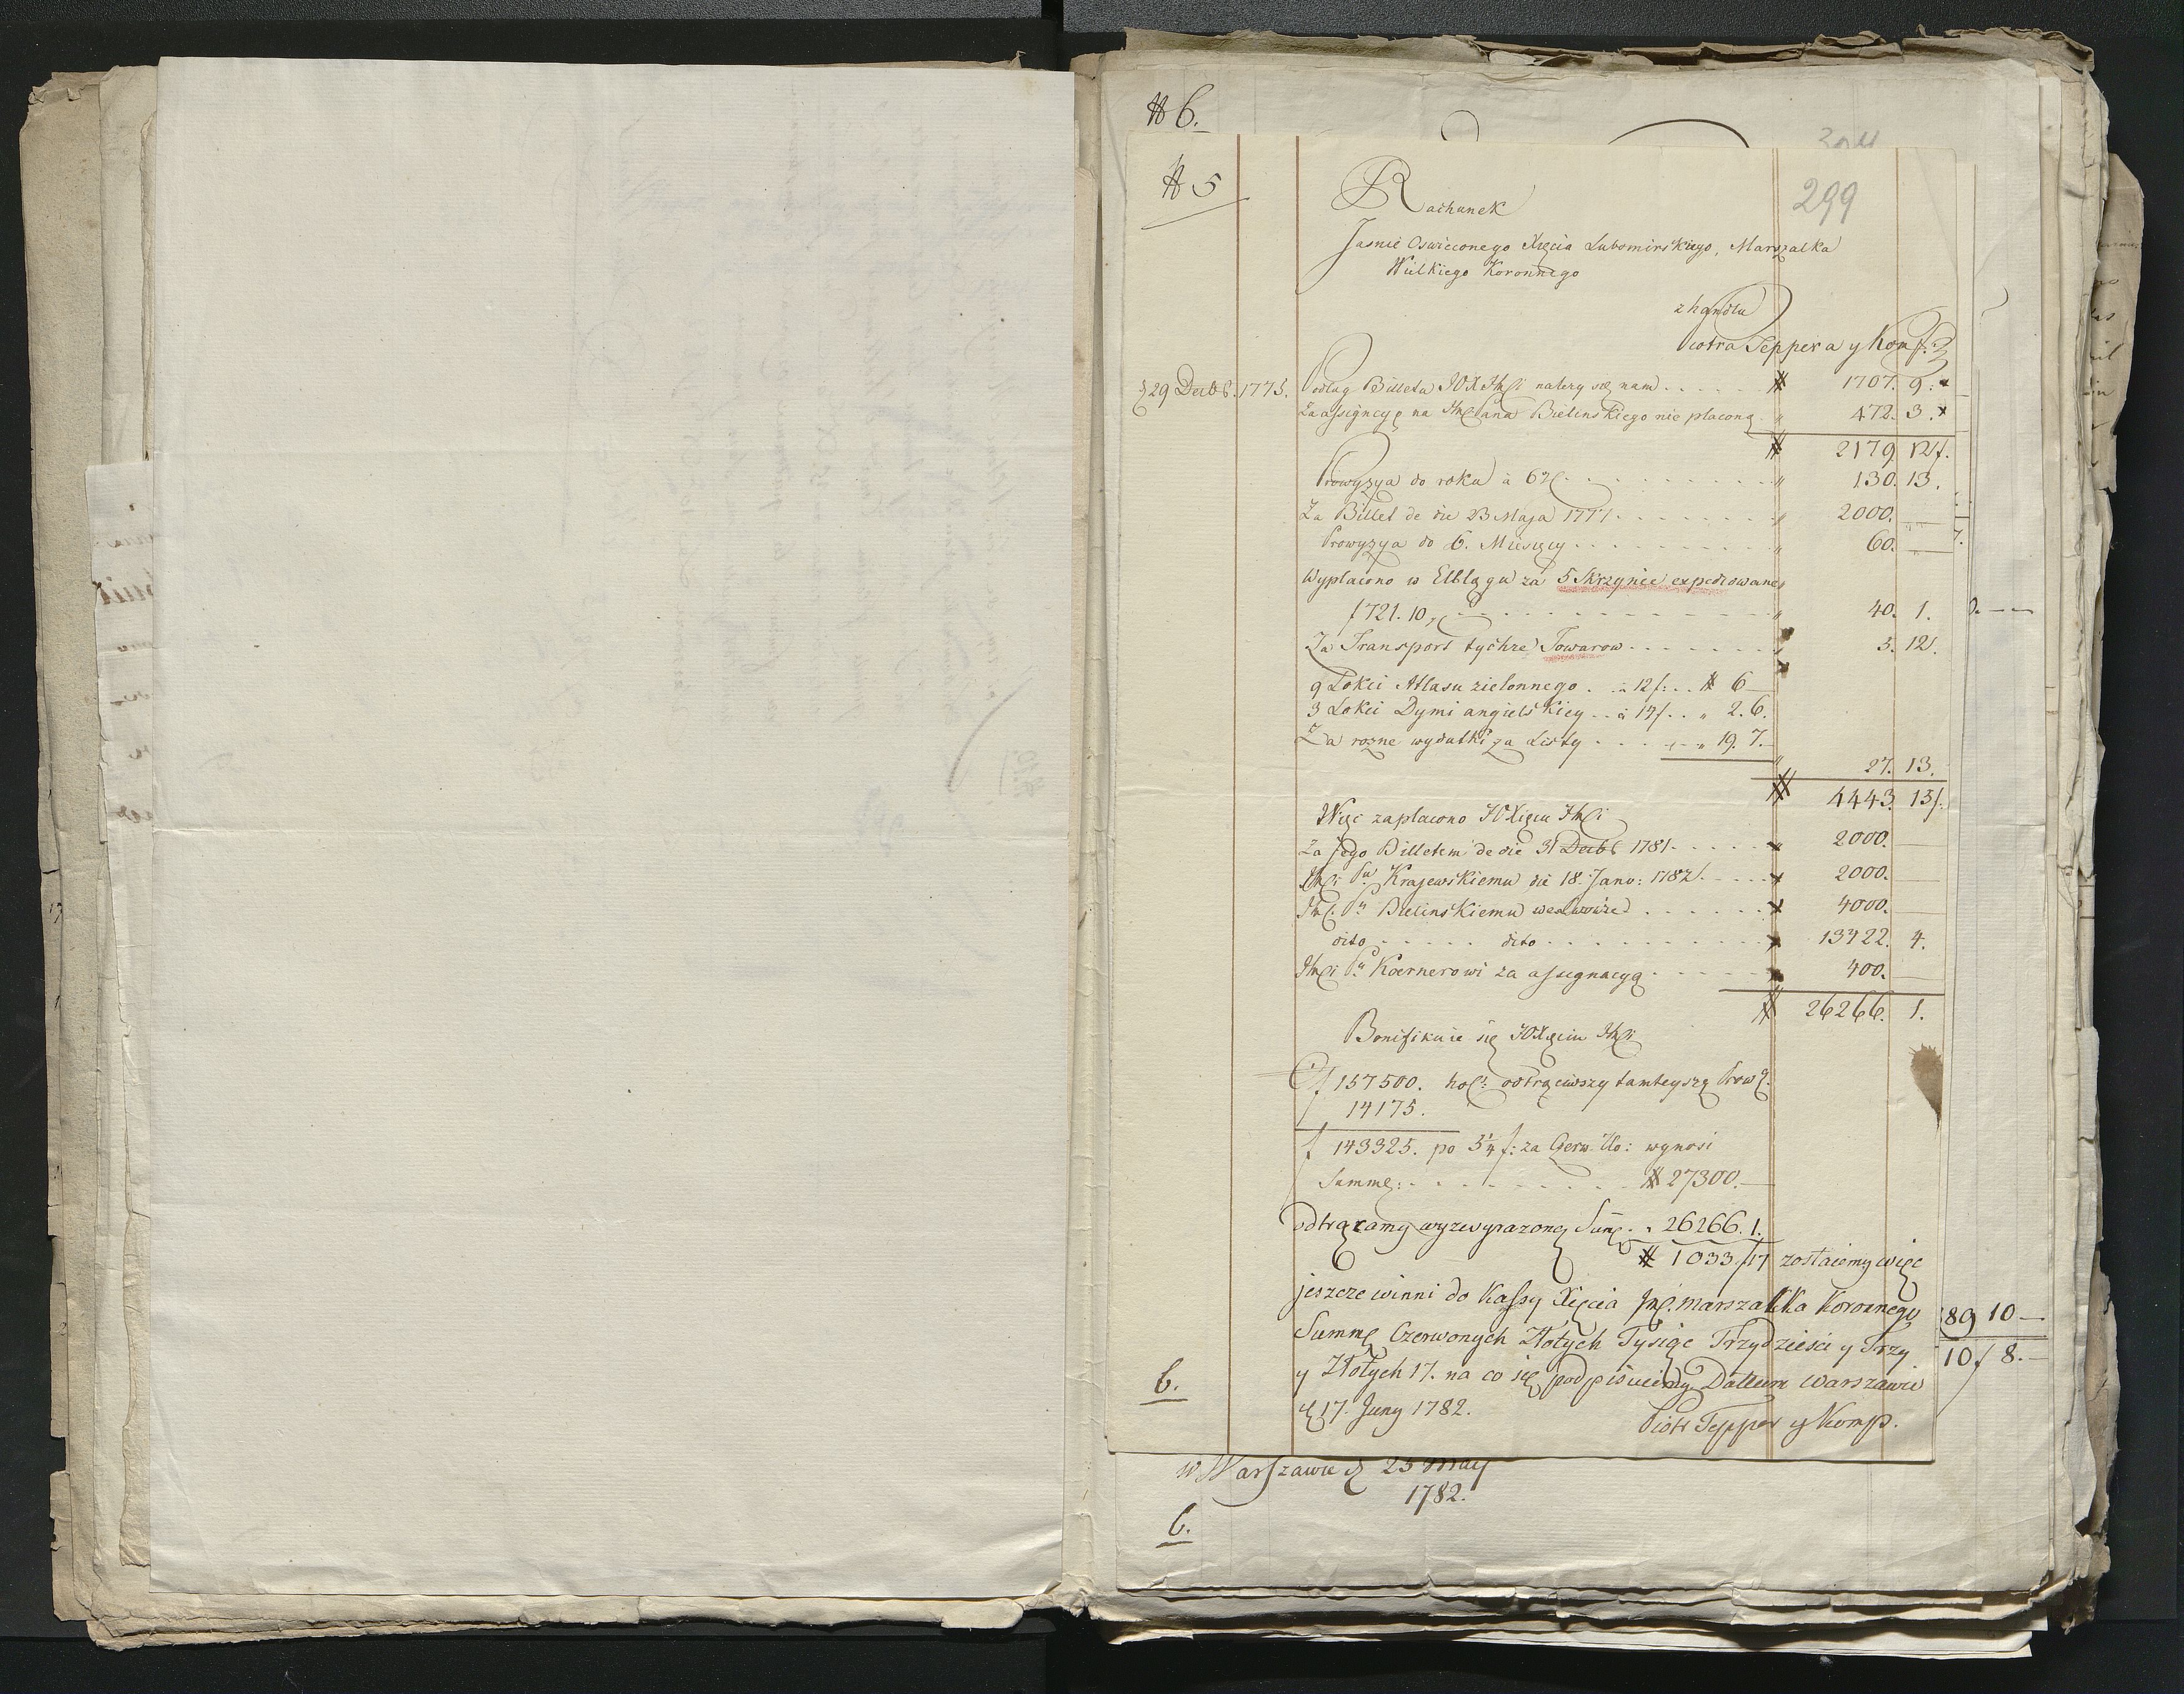 # 6.
304
# 5
299
Rachunek
Jasnie Oswieconego Xięcia Lubomirskiego, Marszalka
Wielkiego Koronnego
z handlu
Piotra Teppera y Komp:
d 29 Decbr. 1775. Podług Billetu JOX Jmci należy się nam . . . . # 1707. 9.
Za assigncyę na Jmc Pana Bielinskiego nie placoną " 472. 3.
# 2179 12 f.
Prowyzya do roku à 6% . . . . " 130. 13.
Za Billet de die 23 Maja 1771 . . . . " 2000. —
Prowyzya do 6. Miesięcy . . . . " 60. —
Wyplacono w Elblągu za 5 Skrzynie expediowane
f 721. 10, . . . . " 40. 1.
Za Transport tychze Towarow . . . . " 3. 12.
9 Lokci Atlasu zielonnego . . à 12 f: . . # 6 —
3 Lokci Dymi angielskiey . . à 14 f. . " 2. 6.
Za rozne wydatki za Listy . . . . " 19. 7. —
" 27. 13.
# 4443. 15 f.
Więc zaplacono JOXięciu Jmci
Za jego Billetem de die 31 Decbr 1781 . . . . 2000. —
Jmci Pu Krajewskiemu die 18. Janu: 1782 . . . . 2000. —
Jmc. Pu Bielinskiemu . . . . 4000. —
dito . . . . dito . . . . 13422. 4.
Jmci Pu Koernerowi za assygnacyą . . . . 400. —
# 26266. 1.
Bonifikuie się JOXięciu Jmci
f 157500. hol: odtrąciwszy tamteyszą Prowę.
14175.
f 143325. po 5¼ f: za Czerw. Zło: wynosi
Summę: . . . . # 27300. —
odtrącamy wyzewyrazoną Sumę . " 26266. 1.
# 1033 f 17 zostaiemy więc
jeszcze winni do Kassy Xięcia Jmc. marszałka Koronnego
Summę Czerwonych Złotych Tysiąc Trzydziesci y Trzy
y Złotych 17. na co się podpisuiemy Dattum Warszawie
d 17. Juny 1782.
Piotr Tepper y Komp.
6.
89 10 —
10 f 8. —
w Warszawie d 25 May
1782.
6.